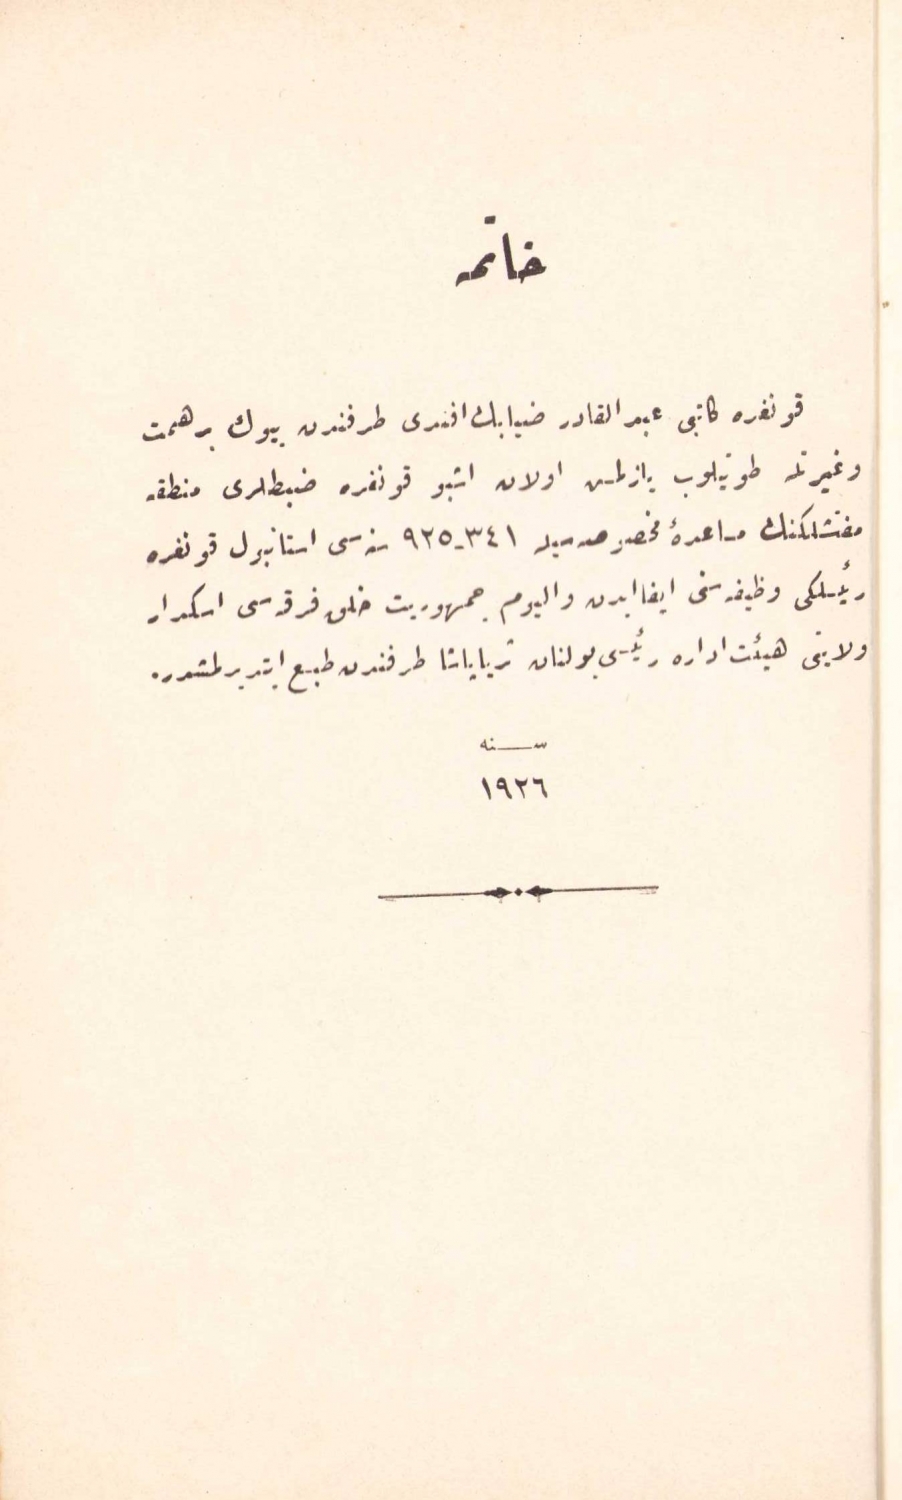 خاتمه
قونغره كاتبى عبد القادر ضيا بك افندى طرفندن بيوك بر همت
وغيرتله طوتيلوب يازلمش اولان اشبو قونغره ضبطلرى منطقه
مفتشلكنك مساعدۀ مخصوصه سيله ٣٤١-٩٢٥ سنه سى استانبول قونغره
رئيسلكى وظيفه سنى ايفا ايدن واليوم جمهوريت خلق فرقه سى اسكدار
ولايتى هيئت اداره رئيسى بولنان ثريا پاشا طرفندن طبع ايتديرلمشدر.
سنه
١٩٢٦